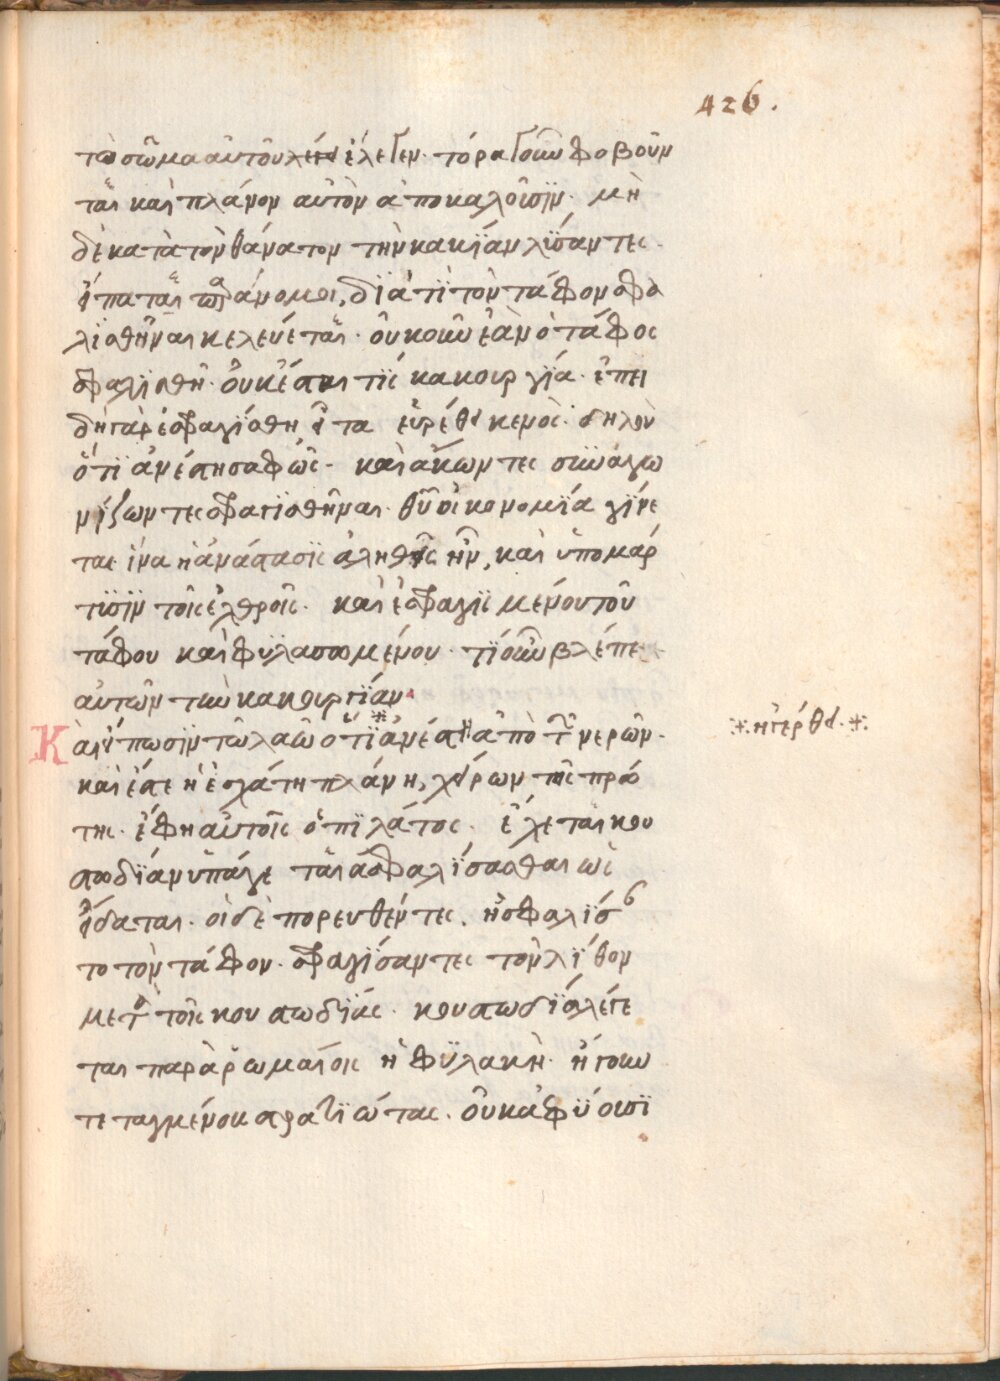 426.
τὸ σῶμα αὐτοῦ ἔλεγεν. τόρα γοῦν φοβοῦν
ται καὶ πλάνον αὐτὸν ἀποκαλοῦσϊν. μὴ
δὲ κατὰ τὸν θάνατον τὴν κακϊάν λΐσαντες.
ἦπαται παράνομοι, δϊατϊ τὸν τάφον σφα
λϊσθῆναι κελεύεται. οὐκοῦν ἐὰν ὁ τάφος
σφαλϊσθῆ. οὐκ ἔστι τίς κακουργία. ἐπει
δὴ γὰρ ἐσφαγΐσθη, εἶτα εὑρέθη κενὸς. δηλον
ὅτϊ ἀνέστη σαφῶς. καὶ ἄκωντες συναγω
νίζωντες σφαγϊσθῆναι. θῦ οἰκονομΐα γΐνε
ται ἵνα ἡ ἀνάστασϊς ἀληθῆς ἦν, καὶ ὑπομάρ
τϊσϊν τοῖς ἐχθροῖς. καὶ ἐσφαγϊσμένου τοῦ
τάφου καὶ φϋλασσομένου. τΐ οὖν βλέπε
αὐτῶν τὴν κακουργΐαν
Καὶ εἴπωσϊν τῶ λαῶ ὅτϊ ἀνέστη ἀπὸ τῶν νερῶν.
⁜ ἠγέρθη. ⁜
καὶ ἔστε ἡ ἐσχάτη πλάνη, χείρων τῆς πρό
της. ἔφη αὐτοῖς ὁ πϊλάτος. ἔχεται κου
στοδϊάν ὑπάγεται ἀσφαλΐσασθαι ὡς
οἴδαται. οἱ δὲ πορευθέντες. ἠσφαλΐσαν
το τὸν τάφον. σφαγΐσαντες τὸν λΐθον
μετὰ τοῖς κουστωδϊάς. κουστωδϊά λέγε
ται παρὰ ῥωμαίοις ἡ φϋλακὴ. ἤγουν
τεταγμένοι στρατϊώτας. οὐκ ἀφϋουσϊ